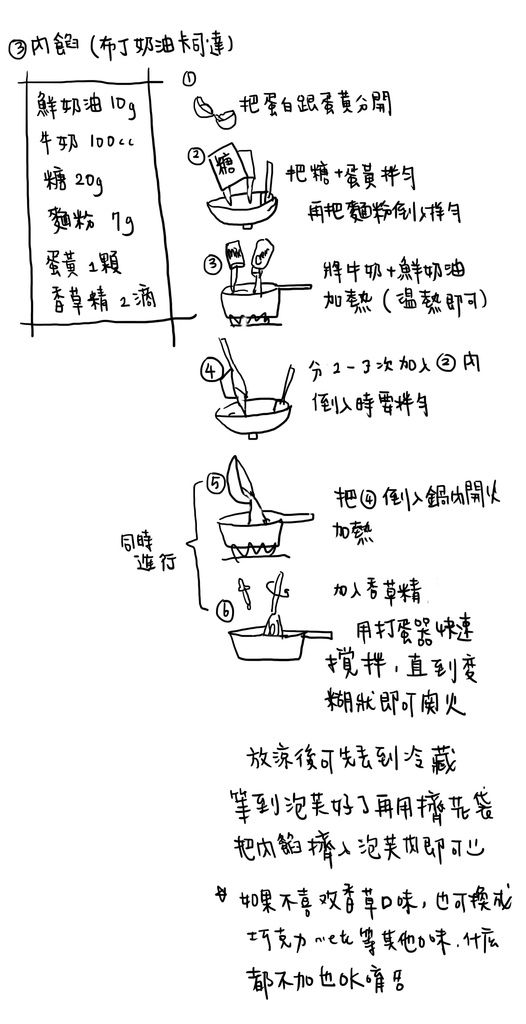 ③內餡(布丁奶油卡司達)
鮮奶油 10g
牛奶 100cc
糖 20g
麵粉 7g
蛋黃 1顆
香草精 2滴
①
把蛋白跟蛋黃分開
②
糖
把糖+蛋黃拌勻
再把麵粉倒入拌勻
③
將牛奶+鮮奶油
加熱(溫熱即可)
④
分2-3次加入②內
倒入時要拌勻
同時
進行
⑤
把④倒入鍋內開火
加熱
⑥
加入香草精
用打蛋器快速
攪拌,直到變
糊狀即可關火
放涼後可先丟到冷藏
等到泡芙好了再用擠花袋
把內餡擠入泡芙內即可
如果不喜欢香草口味,也可換成
巧克力…etc等其他口味.什麼
都不加也OK唷